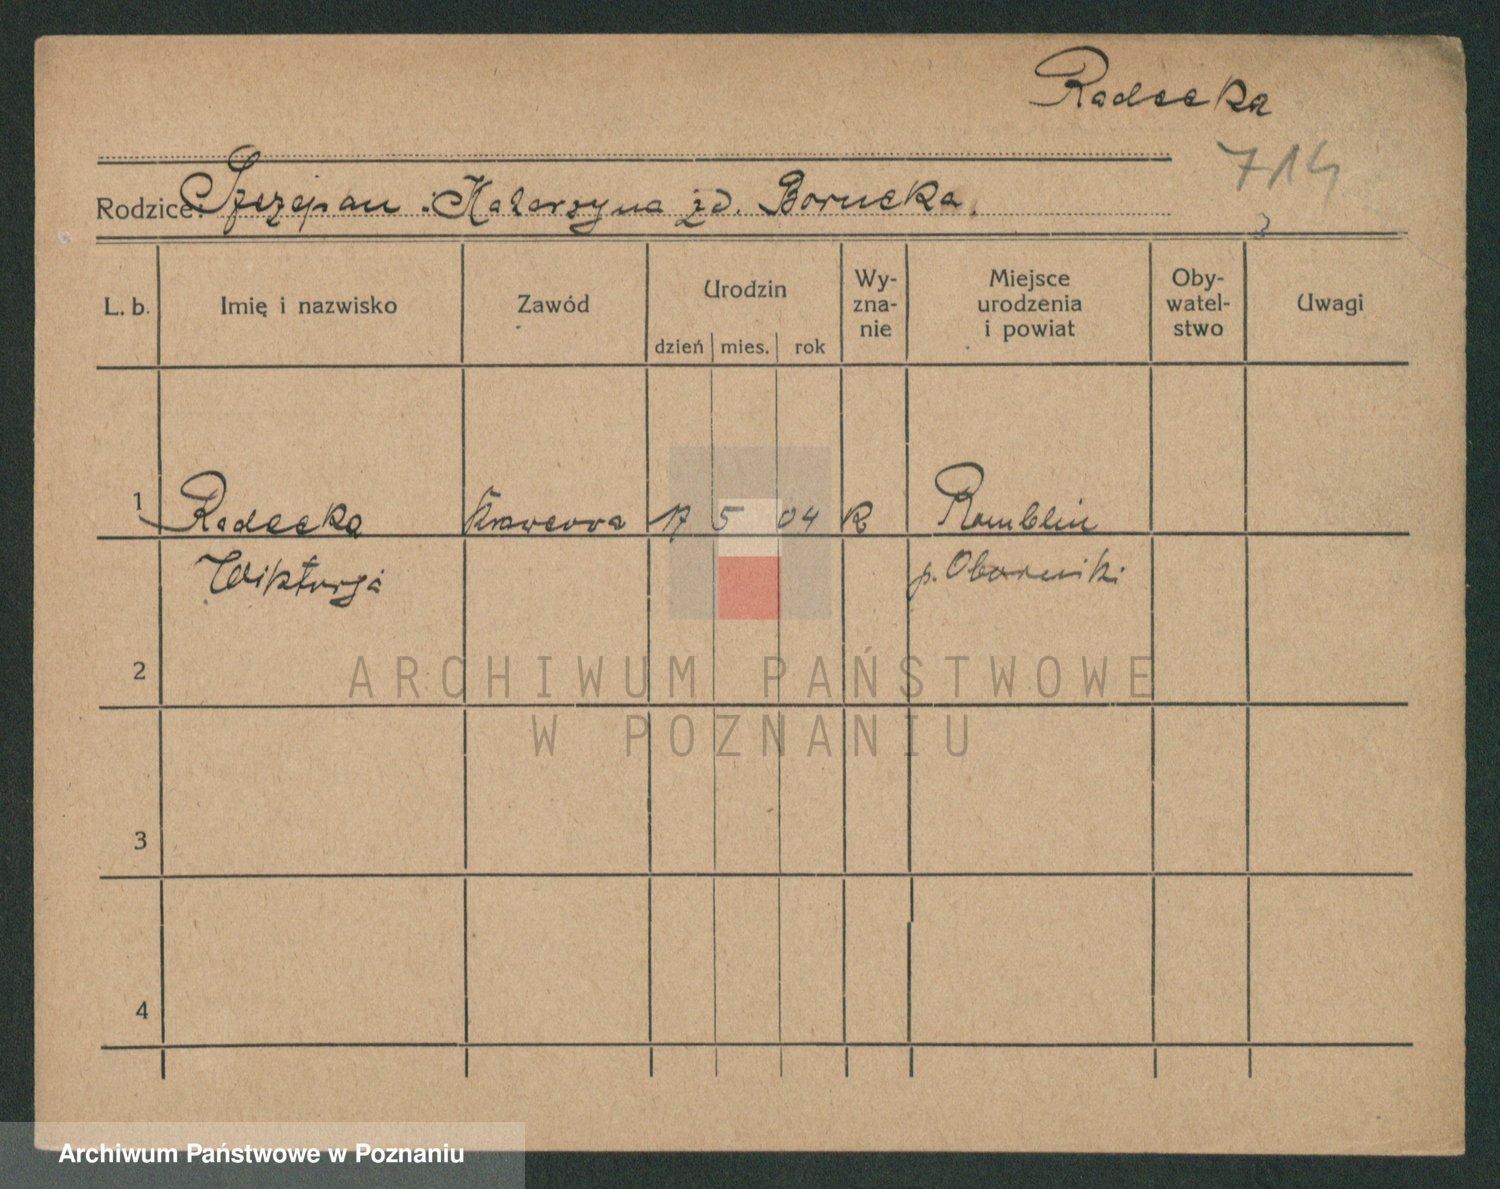 Radecka
714
Rodzice: Szczepan i Katarzyna zd. Borucka.
L. b. Imię i nazwisko Zawód Urodzin dzień mies. rok Wy-zna-nie Miejsce urodzenia i powiat Oby-watel-stwo Uwagi
1 Radecka Krawcowa 17 5 04 R Romblin
Wiktorja p. Oborniki
2
3
4
ARCHIWUM PAŃSTWOWE
W POZNANIU
Archiwum Państwowe w Poznaniu